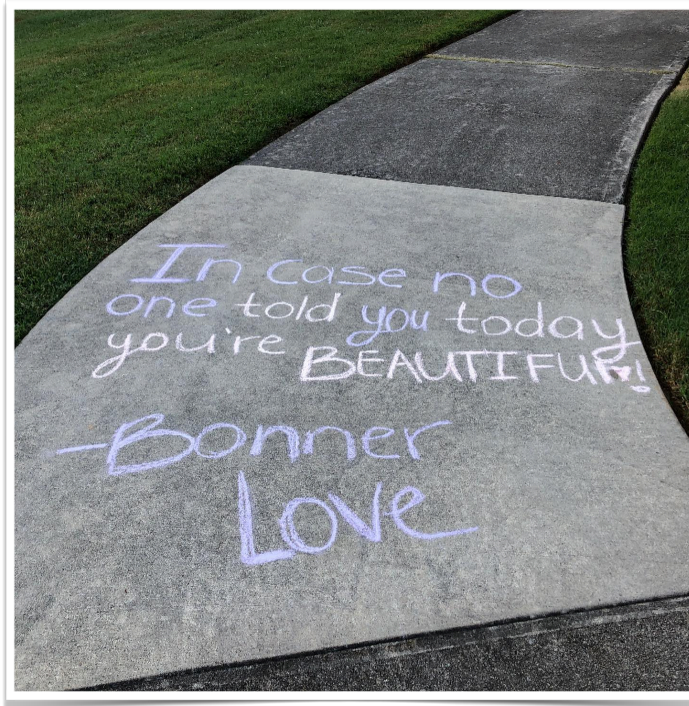 In case no
one told you today
you're BEAUTIFUL!
-Bonner
Love